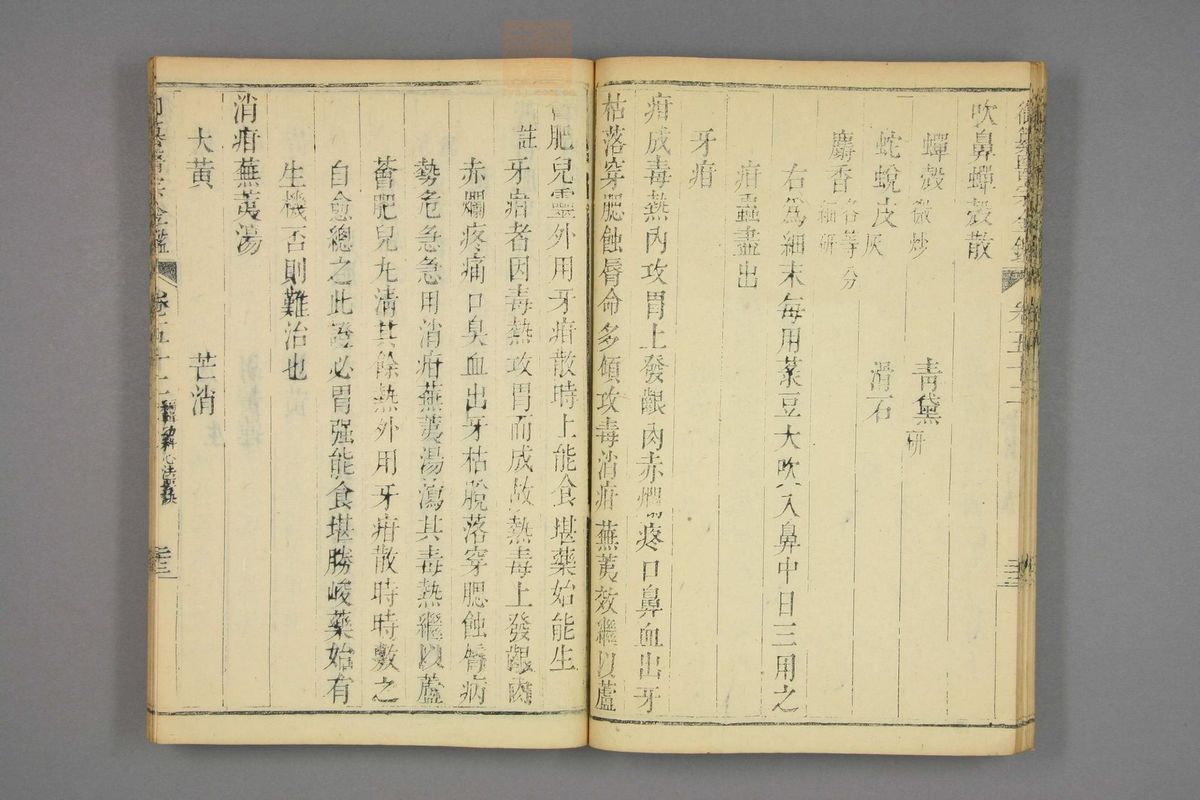 吹鼻蟬殼散
蟬殼微炒　青黛研
蛇蛻皮灰　滑石
麝香各等分
細研
右為細末每用菉豆大吹入鼻中日三用之
疳蟲盡出
牙疳
疳成毒熱內攻胃上發齦肉赤爛疼口鼻血出牙
枯落穿腮蝕脣命多傾攻毒消疳蕪荑效繼以蘆
薈肥兒靈外用牙疳散時上能食堪藥始能生
註牙疳者因毒熱攻胃而成故熱毒上發齦肉
赤爛疼痛口臭血出牙枯脫落穿腮蝕脣病
勢危急急用消疳蕪荑湯瀉其毒熱繼以蘆
薈肥兒丸清其餘熱外用牙疳散時時敷之
自愈總之此證必胃强能食堪勝峻藥始有
生機否則難治也
消疳蕪荑湯
大黃　芒消
御纂醫宗金鑑
卷五十二
幼科心法要訣